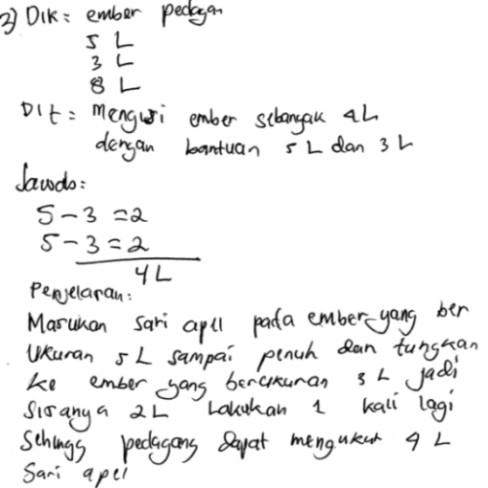 2) Dik = ember pedagan
5 L
3 L
8 L
Dit = Mengisi ember sebanyak 4L
dengan bantuan 5 L dan 3 L
Jawab:
5-3 =2
5-3=2
4L
Penjelasan:
Masukan sari apel pada ember yang ber
Ukuran 5 L sampai penuh dan tungkan
ke ember yang berukuran 3 L jadi
Sisanya 2L Lakukan 1 kali lagi
Sehingg pedagang dapat mengukur 4 L
Sari apel